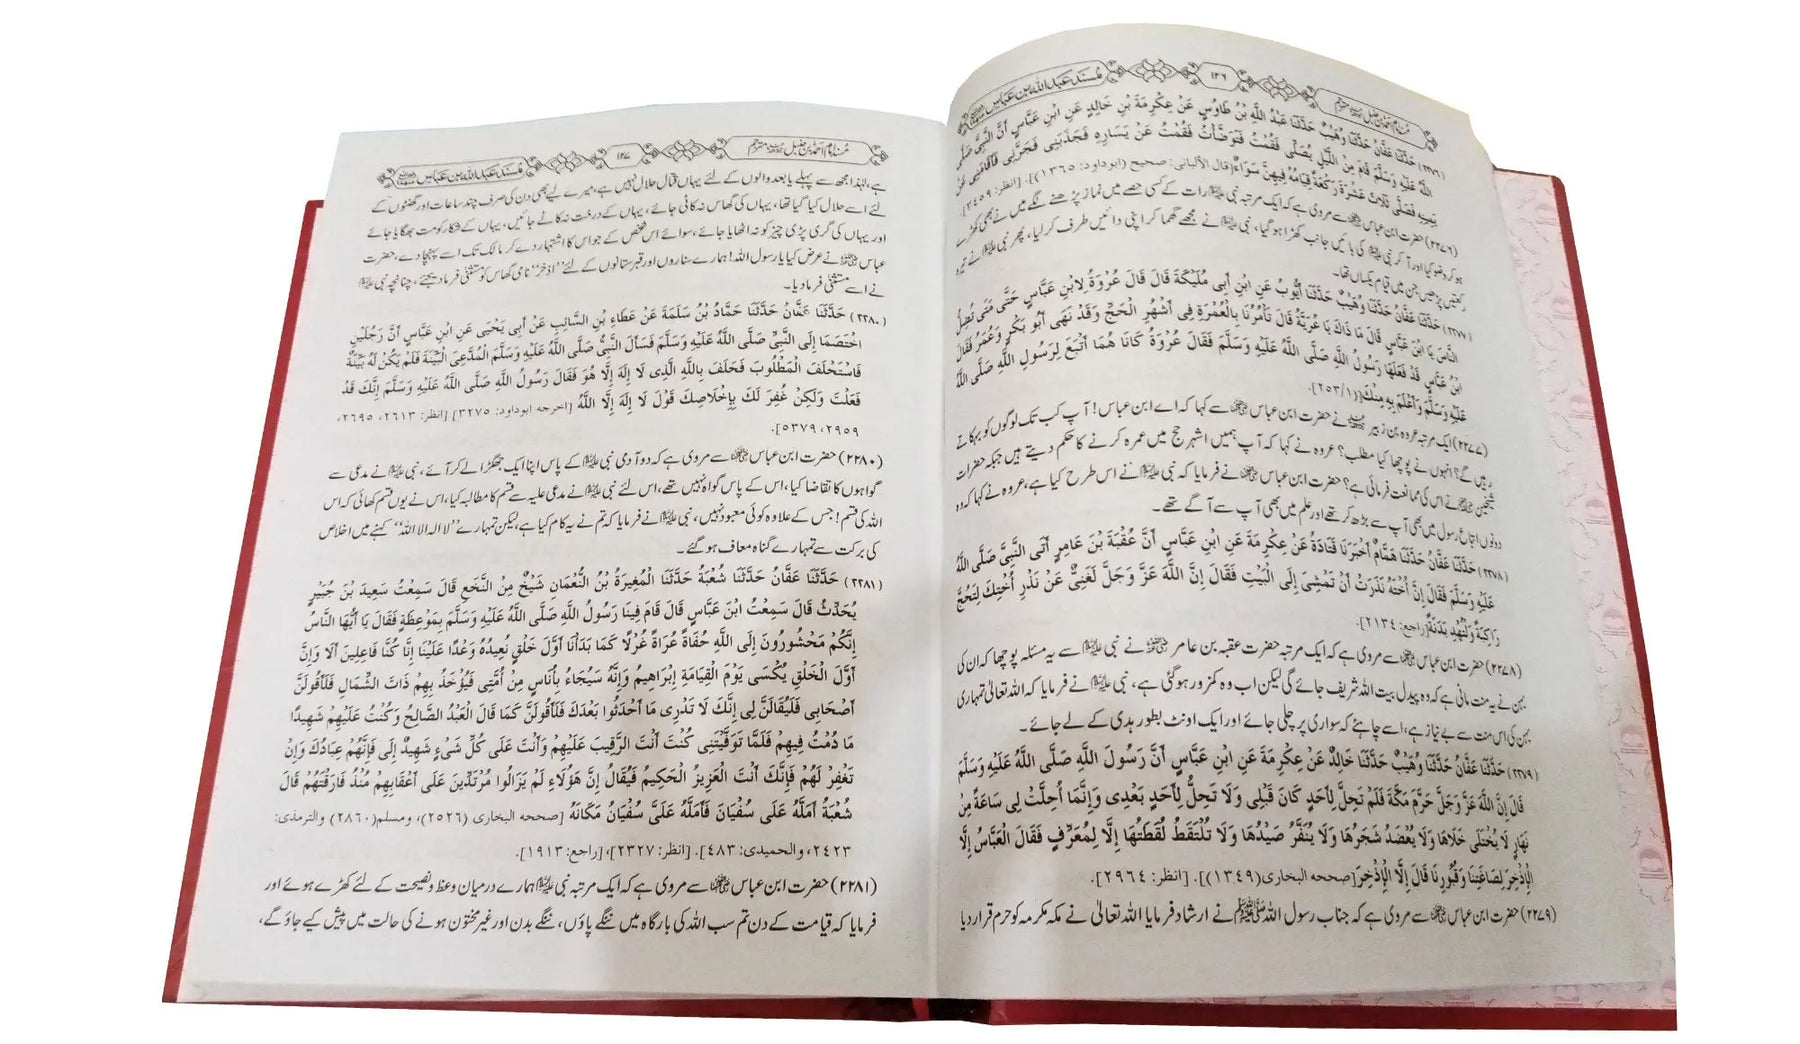 مُسنَد عَبد اللہ بن عَبّاس
۱۳۶
مُسنَد امام احمد بن حنبل مترجم
(۲۲۷۶) حَدَّثَنَا عَفَّانُ حَدَّثَنَا وُهَيْبٌ حَدَّثَنَا عَبْدُ اللَّهِ بْنُ طَاوُسٍ عَنْ عِكْرِمَةَ بْنِ خَالِدٍ عَنِ ابْنِ عَبَّاسٍ أَنَّ النَّبِيَّ صَلَّى
اللَّهُ عَلَيْهِ وَسَلَّمَ قَامَ مِنَ اللَّيْلِ يُصَلِّي فَقُمْتُ فَتَوَضَّأْتُ فَقُمْتُ عَنْ يَسَارِهِ فَجَذَبَنِي فَجَرَّنِي فَأَقَامَنِي عَنْ
يَمِينِهِ فَصَلَّى ثَلَاثَ عَشْرَةَ رَكْعَةً قِيَامُهُ فِيهِنَّ سَوَاءٌ [قال الألباني: صحيح (ابوداود: ۱۳۶۵)]. [انظر: ۳۴۵۹].
(۲۲۷۶) حضرت ابن عباس ؓ سے مروی ہے کہ ایک مرتبہ نبی ﷺ رات کے کسی حصے میں نماز پڑھنے لگے میں نے بھی کھڑے
ہو کر وضو کیا اور آ کر نبی ﷺ کی بائیں جانب کھڑا ہو گیا، نبی ﷺ نے مجھے گھما کر اپنی دائیں طرف کر لیا، پھر نبی ﷺ نے تیرہ
رکعتیں پڑھیں جن میں قیام یکساں تھا۔
(۲۲۷۷) حَدَّثَنَا عَفَّانُ حَدَّثَنَا وُهَيْبٌ حَدَّثَنَا أَيُّوبُ عَنِ ابْنِ أَبِي مُلَيْكَةَ قَالَ قَالَ عُرْوَةُ لِابْنِ عَبَّاسٍ حَتَّى مَتَى تُضِلُّ
النَّاسَ يَا ابْنَ عَبَّاسٍ قَالَ مَا ذَاكَ يَا عُرَيَّةُ قَالَ تَأْمُرُنَا بِالْعُمْرَةِ فِي أَشْهُرِ الْحَجِّ وَقَدْ نَهَى أَبُو بَكْرٍ وَعُمَرُ فَقَالَ
ابْنُ عَبَّاسٍ قَدْ فَعَلَهَا رَسُولُ اللَّهِ صَلَّى اللَّهُ عَلَيْهِ وَسَلَّمَ فَقَالَ عُرْوَةُ كَانَا هُمَا أَتْبَعَ لِرَسُولِ اللَّهِ صَلَّى اللَّهُ
عَلَيْهِ وَسَلَّمَ وَأَعْلَمَ بِهِ مِنْكَ [(۲۵۳/۱)].
(۲۲۷۷) ایک مرتبہ عروہ بن زبیر ؒ نے حضرت ابن عباس ؓ سے کہا کہ اے ابن عباس! آپ کب تک لوگوں کو بہکاتے
رہیں گے؟ انہوں نے پوچھا کیا مطلب؟ عروہ نے کہا کہ آپ ہمیں اشہر حج میں عمرہ کرنے کا حکم دیتے ہیں جبکہ حضرات
شیخین ؓ نے اس کی ممانعت فرمائی ہے؟ حضرت ابن عباس ؓ نے فرمایا کہ نبی ﷺ نے اس طرح کیا ہے، عروہ نے کہا کہ وہ
دونوں اتباع رسول میں بھی آپ سے بڑھ کر تھے اور علم میں بھی آپ سے آگے تھے۔
(۲۲۷۸) حَدَّثَنَا عَفَّانُ حَدَّثَنَا هَمَّامٌ أَخْبَرَنَا قَتَادَةُ عَنْ عِكْرِمَةَ عَنِ ابْنِ عَبَّاسٍ أَنَّ عُقْبَةَ بْنَ عَامِرٍ أَتَى النَّبِيَّ صَلَّى اللَّهُ
عَلَيْهِ وَسَلَّمَ فَقَالَ إِنَّ أُخْتَهُ نَذَرَتْ أَنْ تَمْشِيَ إِلَى الْبَيْتِ فَقَالَ إِنَّ اللَّهَ عَزَّ وَجَلَّ لَغَنِيٌّ عَنْ نَذْرِ أُخْتِكَ لِتَحُجَّ
رَاكِبَةً وَلْتُهْدِ بَدَنَةً [راجع: ۲۱۳۴].
(۲۲۷۸) حضرت ابن عباس ؓ سے مروی ہے کہ ایک مرتبہ حضرت عقبہ بن عامر ؓ نے نبی ﷺ سے یہ مسئلہ پوچھا کہ ان کی
بہن نے یہ منت مانی ہے کہ وہ پیدل بیت اللہ شریف جائے گی لیکن اب وہ کمزور ہو گئی ہے، نبی ﷺ نے فرمایا کہ اللہ تعالیٰ تمہاری
بہن کی اس منت سے بے نیاز ہے، اسے چاہئے کہ سواری پر چلی جائے اور ایک اونٹ بطور ہدی کے لے جائے۔
(۲۲۷۹) حَدَّثَنَا عَفَّانُ حَدَّثَنَا وُهَيْبٌ حَدَّثَنَا خَالِدٌ عَنْ عِكْرِمَةَ عَنِ ابْنِ عَبَّاسٍ أَنَّ رَسُولَ اللَّهِ صَلَّى اللَّهُ عَلَيْهِ وَسَلَّمَ
قَالَ إِنَّ اللَّهَ عَزَّ وَجَلَّ حَرَّمَ مَكَّةَ فَلَمْ تَحِلَّ لِأَحَدٍ كَانَ قَبْلِي وَلَا تَحِلُّ لِأَحَدٍ بَعْدِي وَإِنَّمَا أُحِلَّتْ لِي سَاعَةً مِنْ
نَهَارٍ لَا يُخْتَلَى خَلَاهَا وَلَا يُعْضَدُ شَجَرُهَا وَلَا يُنَفَّرُ صَيْدُهَا وَلَا تُلْتَقَطُ لُقَطَتُهَا إِلَّا لِمُعَرِّفٍ فَقَالَ الْعَبَّاسُ إِلَّا
الْإِذْخِرَ لِصَاغَتِنَا وَقُبُورِنَا قَالَ إِلَّا الْإِذْخِرَ [صححه البخاري (۱۳۴۹)]. [انظر: ۲۹۶۴].
(۲۲۷۹) حضرت ابن عباس ؓ سے مروی ہے کہ جناب رسول اللہ ﷺ نے ارشاد فرمایا اللہ تعالیٰ نے مکہ مکرمہ کو حرم قرار دیا
مُسنَد عَبد اللہ بن عَبّاس
۱۳۷
مُسنَد امام احمد بن حنبل مترجم
ہے، لہٰذا مجھ سے پہلے یا بعد والوں کے لئے یہاں قتال حلال نہیں ہے، میرے لیے بھی دن کی صرف چند ساعات اور گھنٹوں کے
لئے اسے حلال کیا گیا تھا، یہاں کی گھاس نہ کاٹی جائے، یہاں کے درخت نہ کاٹے جائیں، یہاں کے شکار کو مت بھگایا جائے
اور یہاں کی گری پڑی چیز کو نہ اٹھایا جائے، سوائے اس شخص کے جو اس کا اشتہار دے کر مالک تک اسے پہنچا دے، حضرت
عباس ؓ نے عرض کیا یا رسول اللہ! ہمارے سناروں اور قبرستانوں کے لئے ’’اذخر‘‘ نامی گھاس کو مستثنیٰ فرما دیجئے، چنانچہ نبی ﷺ
نے اسے مستثنیٰ فرما دیا۔
(۲۲۸۰) حَدَّثَنَا عَفَّانُ حَدَّثَنَا حَمَّادُ بْنُ سَلَمَةَ عَنْ عَطَاءِ بْنِ السَّائِبِ عَنْ أَبِي يَحْيَى عَنِ ابْنِ عَبَّاسٍ أَنَّ رَجُلَيْنِ
اخْتَصَمَا إِلَى النَّبِيِّ صَلَّى اللَّهُ عَلَيْهِ وَسَلَّمَ فَسَأَلَ النَّبِيُّ صَلَّى اللَّهُ عَلَيْهِ وَسَلَّمَ الْمُدَّعِيَ الْبَيِّنَةَ فَلَمْ يَكُنْ لَهُ بَيِّنَةٌ
فَاسْتَحْلَفَ الْمَطْلُوبَ فَحَلَفَ بِاللَّهِ الَّذِي لَا إِلَهَ إِلَّا هُوَ فَقَالَ رَسُولُ اللَّهِ صَلَّى اللَّهُ عَلَيْهِ وَسَلَّمَ إِنَّكَ قَدْ
فَعَلْتَ وَلَكِنْ غُفِرَ لَكَ بِإِخْلَاصِكَ قَوْلَ لَا إِلَهَ إِلَّا اللَّهُ [اخرجه ابوداود: ۳۲۷۵] [انظر: ۲۶۱۳، ۲۶۹۵،
۲۹۵۹، ۵۳۷۹].
(۲۲۸۰) حضرت ابن عباس ؓ سے مروی ہے کہ دو آدمی نبی ﷺ کے پاس اپنا ایک جھگڑا لے کر آئے، نبی ﷺ نے مدعی سے
گواہوں کا تقاضا کیا، اس کے پاس گواہ نہیں تھے، اس لئے نبی ﷺ نے مدعی علیہ سے قسم کا مطالبہ کیا، اس نے یوں قسم کھائی کہ اس
اللہ کی قسم! جس کے علاوہ کوئی معبود نہیں، نبی ﷺ نے فرمایا کہ تم نے یہ کام کیا ہے، لیکن تمہارے ’’لا الہ الا اللہ‘‘ کہنے میں اخلاص
کی برکت سے تمہارے گناہ معاف ہو گئے۔
(۲۲۸۱) حَدَّثَنَا عَفَّانُ حَدَّثَنَا شُعْبَةُ حَدَّثَنَا الْمُغِيرَةُ بْنُ النُّعْمَانِ شَيْخٌ مِنَ النَّخَعِ قَالَ سَمِعْتُ سَعِيدَ بْنَ جُبَيْرٍ
يُحَدِّثُ قَالَ سَمِعْتُ ابْنَ عَبَّاسٍ قَالَ قَامَ فِينَا رَسُولُ اللَّهِ صَلَّى اللَّهُ عَلَيْهِ وَسَلَّمَ بِمَوْعِظَةٍ فَقَالَ يَا أَيُّهَا النَّاسُ
إِنَّكُمْ مَحْشُورُونَ إِلَى اللَّهِ حُفَاةً عُرَاةً غُرْلًا كَمَا بَدَأْنَا أَوَّلَ خَلْقٍ نُعِيدُهُ وَعْدًا عَلَيْنَا إِنَّا كُنَّا فَاعِلِينَ أَلَا وَإِنَّ
أَوَّلَ الْخَلْقِ يُكْسَى يَوْمَ الْقِيَامَةِ إِبْرَاهِيمُ وَإِنَّهُ سَيُجَاءُ بِأُنَاسٍ مِنْ أُمَّتِي فَيُؤْخَذُ بِهِمْ ذَاتَ الشِّمَالِ فَلَأَقُولَنَّ
أَصْحَابِي فَلَيُقَالَنَّ لِي إِنَّكَ لَا تَدْرِي مَا أَحْدَثُوا بَعْدَكَ فَلَأَقُولَنَّ كَمَا قَالَ الْعَبْدُ الصَّالِحُ وَكُنْتُ عَلَيْهِمْ شَهِيدًا
مَا دُمْتُ فِيهِمْ فَلَمَّا تَوَفَّيْتَنِي كُنْتَ أَنْتَ الرَّقِيبَ عَلَيْهِمْ وَأَنْتَ عَلَى كُلِّ شَيْءٍ شَهِيدٌ إِلَى فَإِنَّهُمْ عِبَادُكَ وَإِنْ
تَغْفِرْ لَهُمْ فَإِنَّكَ أَنْتَ الْعَزِيزُ الْحَكِيمُ فَيُقَالُ إِنَّ هَؤُلَاءِ لَمْ يَزَالُوا مُرْتَدِّينَ عَلَى أَعْقَابِهِمْ مُنْذُ فَارَقْتَهُمْ قَالَ
شُعْبَةُ أَمَلَّهُ عَلَى سُفْيَانَ فَأَمَلَّهُ عَلَيَّ سُفْيَانُ مَكَانَهُ [صححه البخاري (۲۵۲۶)، ومسلم (۲۸۶۰) والترمذي:
۲۴۲۳، والحميدي: ۴۸۳]. [انظر: ۲۳۲۷]، [راجع: ۱۹۱۳].
(۲۲۸۱) حضرت ابن عباس ؓ سے مروی ہے کہ ایک مرتبہ نبی ﷺ ہمارے درمیان وعظ و نصیحت کے لئے کھڑے ہوئے اور
فرمایا کہ قیامت کے دن تم سب اللہ کی بارگاہ میں ننگے پاؤں، ننگے بدن اور غیر مختون ہونے کی حالت میں پیش کیے جاؤ گے،